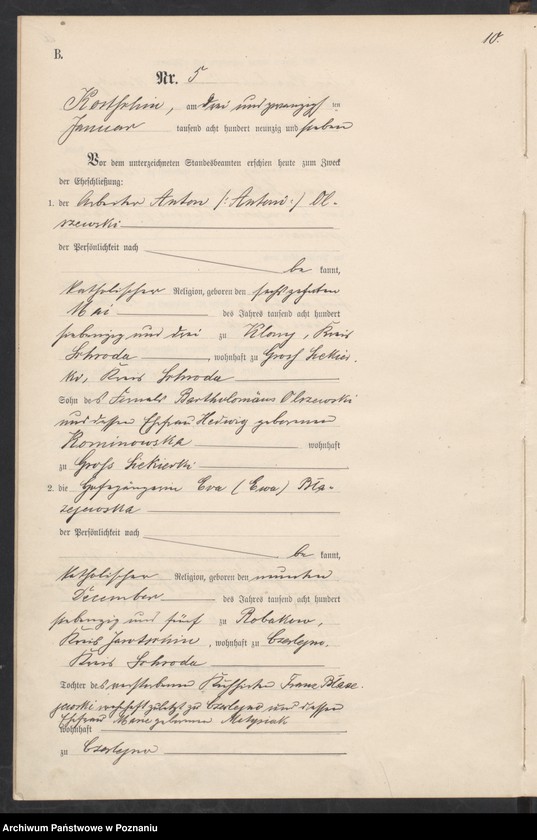 10.
B.
Nr. 5
Kostschin, am drei und zwanzigsten
Januar tausend acht hundert neunzig und sieben
Vor dem unterzeichneten Standesbeamten erschien heute zum Zweck
der Eheschließung:
1. der Arbeiter Anton (: Antoni :) Ol-
szewski
der Persönlichkeit nach
be kannt,
katholischer Religion, geboren den sechszehnten
Mai des Jahres tausend acht hundert
siebenzig und drei zu Klony, Kreis
Schroda, wohnhaft zu Groß Siekier-
ki, Kreis Schroda
Sohn des Fornals Bartholomäus Olszewski
und dessen Ehefrau Hedwig geborenen
Kominowska wohnhaft
zu Groß Siekierki
2. die Hofegängerin Eva (Ewa) Bła-
zejewska
der Persönlichkeit nach
be kannt,
katholischer Religion, geboren den neunten
December des Jahres tausend acht hundert
siebenzig und fünf zu Robakow,
Kreis Jarotschin, wohnhaft zu Czerlejno,
Kreis Schroda
Tochter des verstorbenen Kuhhirten Franz Błaze-
jewski wohnhaft zuletzt zu Czerlejno und dessen
Ehefrau Marie geborenen Matysiak
wohnhaft
zu Czerlejno
Archiwum Państwowe w Poznaniu